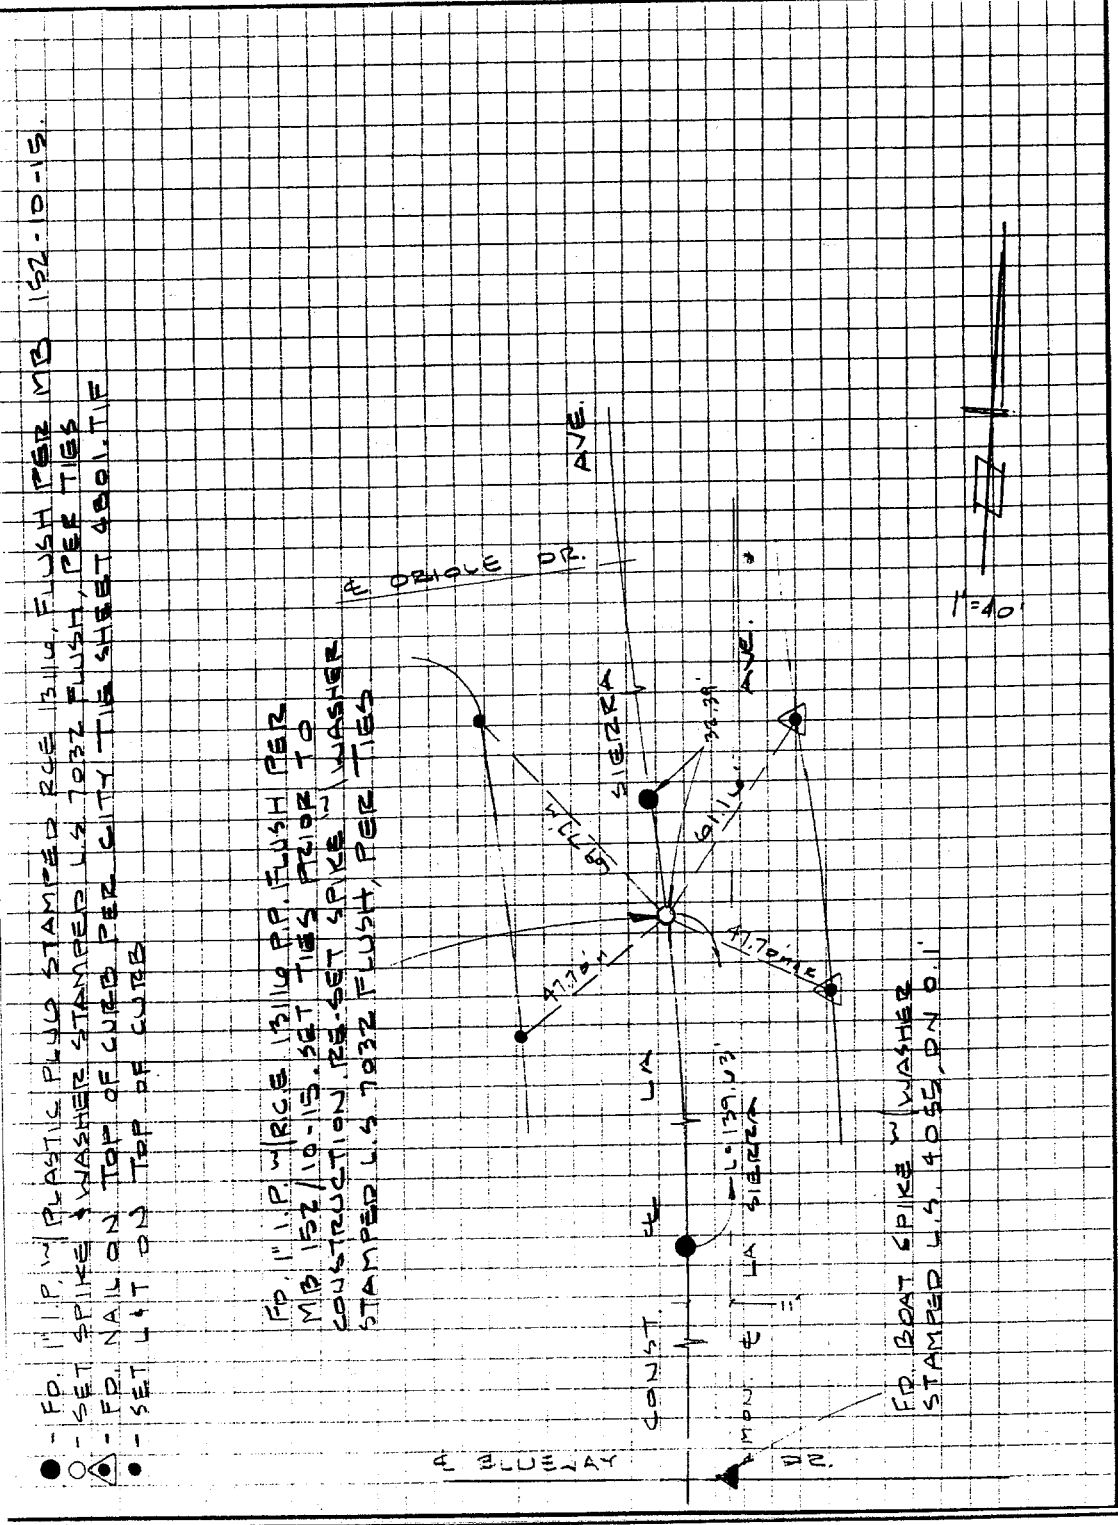 ● - FD. 1" I.P. W/ PLASTIC PLUG STAMPED RCE 13116, FLUSH PER MB 152-10-15.
○ - SET SPIKE & WASHER STAMPED L.S. 7032 FLUSH, PER TIES
- FD. NAIL ON TOP OF CURB PER CITY TIE SHEET 4B01.TIF
• - SET L&T ON TOP OF CURB
FD. 1" I.P. W/ RCE 13116 P.P. FLUSH PER
MB 152/10-15. SET TIES PRIOR TO
CONSTRUCTION. RE-SET SPIKE W/ WASHER
STAMPED L.S. 7032 FLUSH, PER TIES
℄ ORIOLE DR.
47.70'
CONST. ℄ LA SIERRA AVE.
61.16'
47.70'
L=139.03'
MON. ℄ LA SIERRA AVE.
℄ BLUEJAY DR.
FD. BOAT SPIKE W/ WASHER
STAMPED L.S. 4055, DN 0.11'
1"=40'